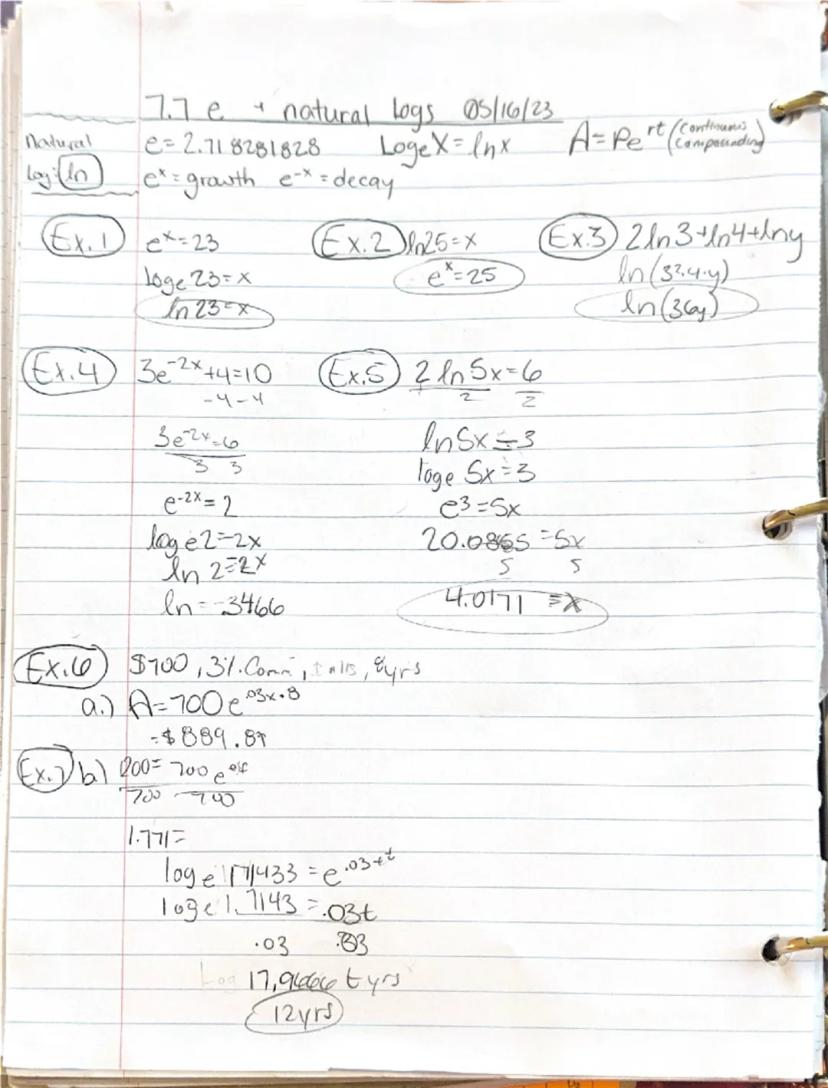 7.7 e + natural logs 05/16/23
Natural
Log: ln
e = 2.718281828 Loge X = ln x A = Pe^rt (Continuous Compounding)
e^x = growth e^-x = decay
Ex.1 e^x = 23
loge 23 = x
ln 23 = x
Ex.2 ln 25 = x
e^x = 25
Ex.3 2 ln 3 + ln 4 + ln y
ln(3^2·4·y)
ln(36y)
Ex.4 3e^-2x + 4 = 10
-4 -4
3e^-2x = 6
3 3
e^-2x = 2
log e 2 = -2x
ln 2 = -2x
ln = -.3466
Ex.5 2 ln 5x = 6
2 2
ln 5x = 3
loge 5x = 3
e^3 = 5x
20.0855 = 5x
5 5
4.0171 = x
Ex.6 $700, 3%, 8yrs
a.) A = 700 e^.03x·8
= $889.87
Ex.7 b) 1200 = 700 e
700 700
1.771 =
log e 1.71433 = e^.03·t
loge 1.7143 = .03t
.03 .03
17.9666 t yrs
12yrs